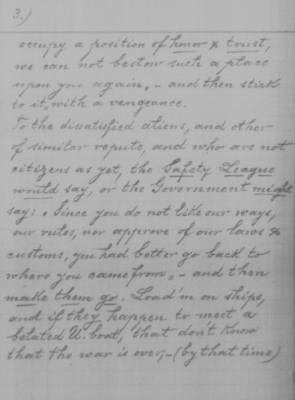 3.)
occupy a position of honor & trust,
we can not bestow such a place
upon you again, - and then stick
to it, with a vengeance.
To the dissatisfied aliens, and other
of similar repute, and who are not
citizens as yet, the Safety League
would say, or the Government might
say: Since you do not like our ways,
our rules, nor approve of our laws &
customs, you had better go back to
where you came from, - and then
make them go. Load'm on ships,
and if they happen to meet a
belated U. boat, that don't know
that the war is over; - (by that time)